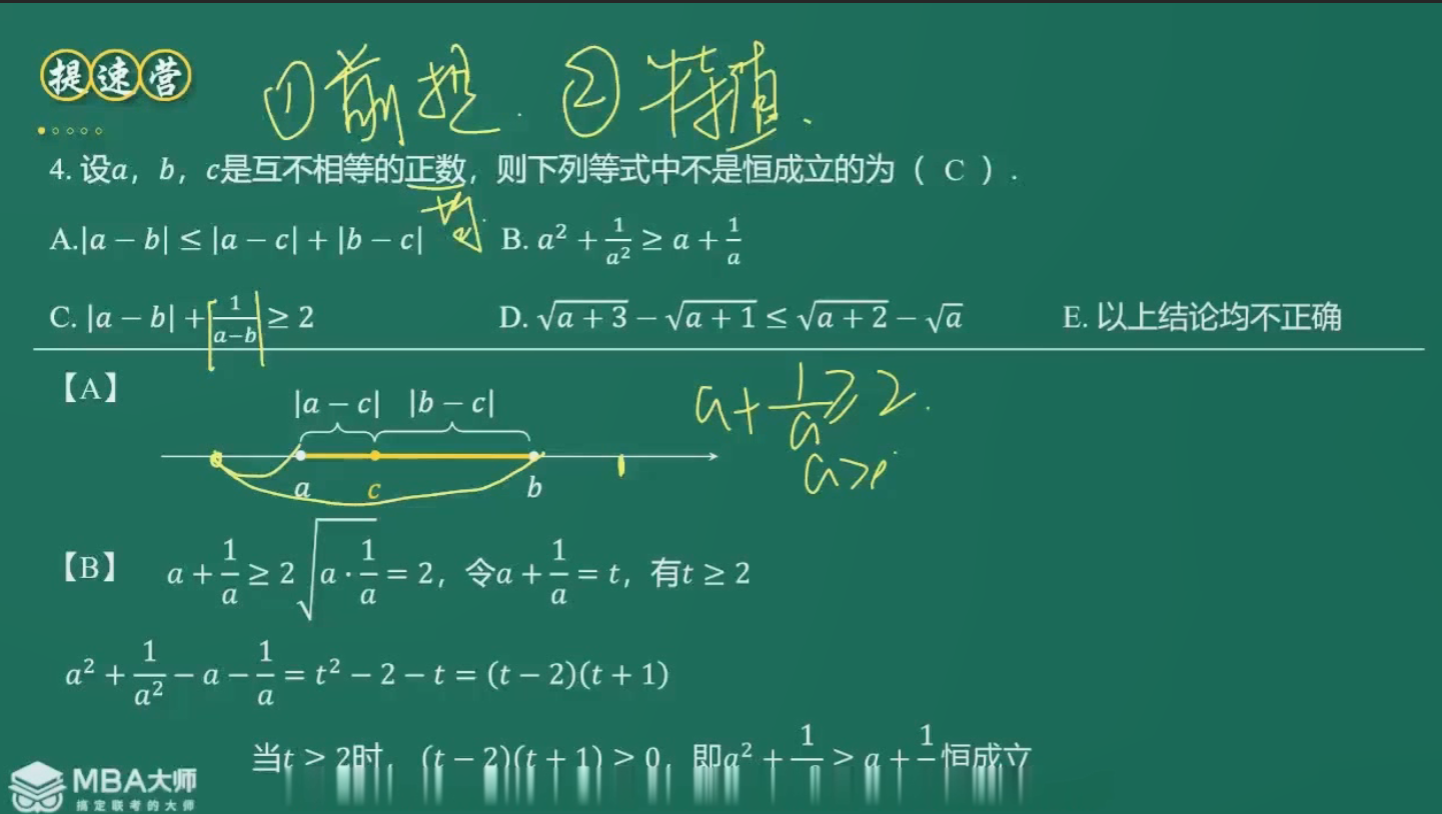 提速营
①前提. ②特值.
4. 设a，b，c是互不相等的正数，则下列等式中不是恒成立的为（ C ）.
均
A.|a − b| ≤ |a − c| + |b − c| B. a² + 1/a² ≥ a + 1/a
C. |a − b| + |1/(a−b)| ≥ 2 D. √(a + 3) − √(a + 1) ≤ √(a + 2) − √a E. 以上结论均不正确
【A】
|a − c| |b − c|
a c b
a + 1/a ≥ 2.
a>0
【B】 a + 1/a ≥ 2√(a · 1/a) = 2，令a + 1/a = t，有t ≥ 2
a² + 1/a² − a − 1/a = t² − 2 − t = (t − 2)(t + 1)
当t > 2时，(t − 2)(t + 1) > 0，即a² + 1/ > a + 1/ 恒成立
MBA大师
搞定联考的大师